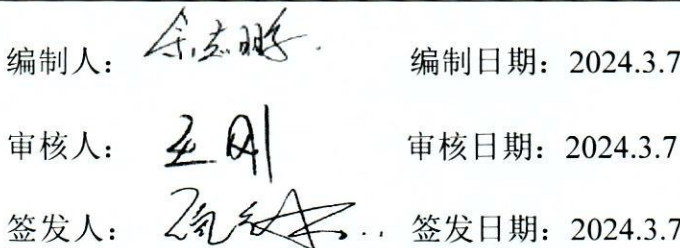 编制人：余志鹏 编制日期：2024.3.7
审核人：王刚 审核日期：2024.3.7
签发人： 签发日期：2024.3.7